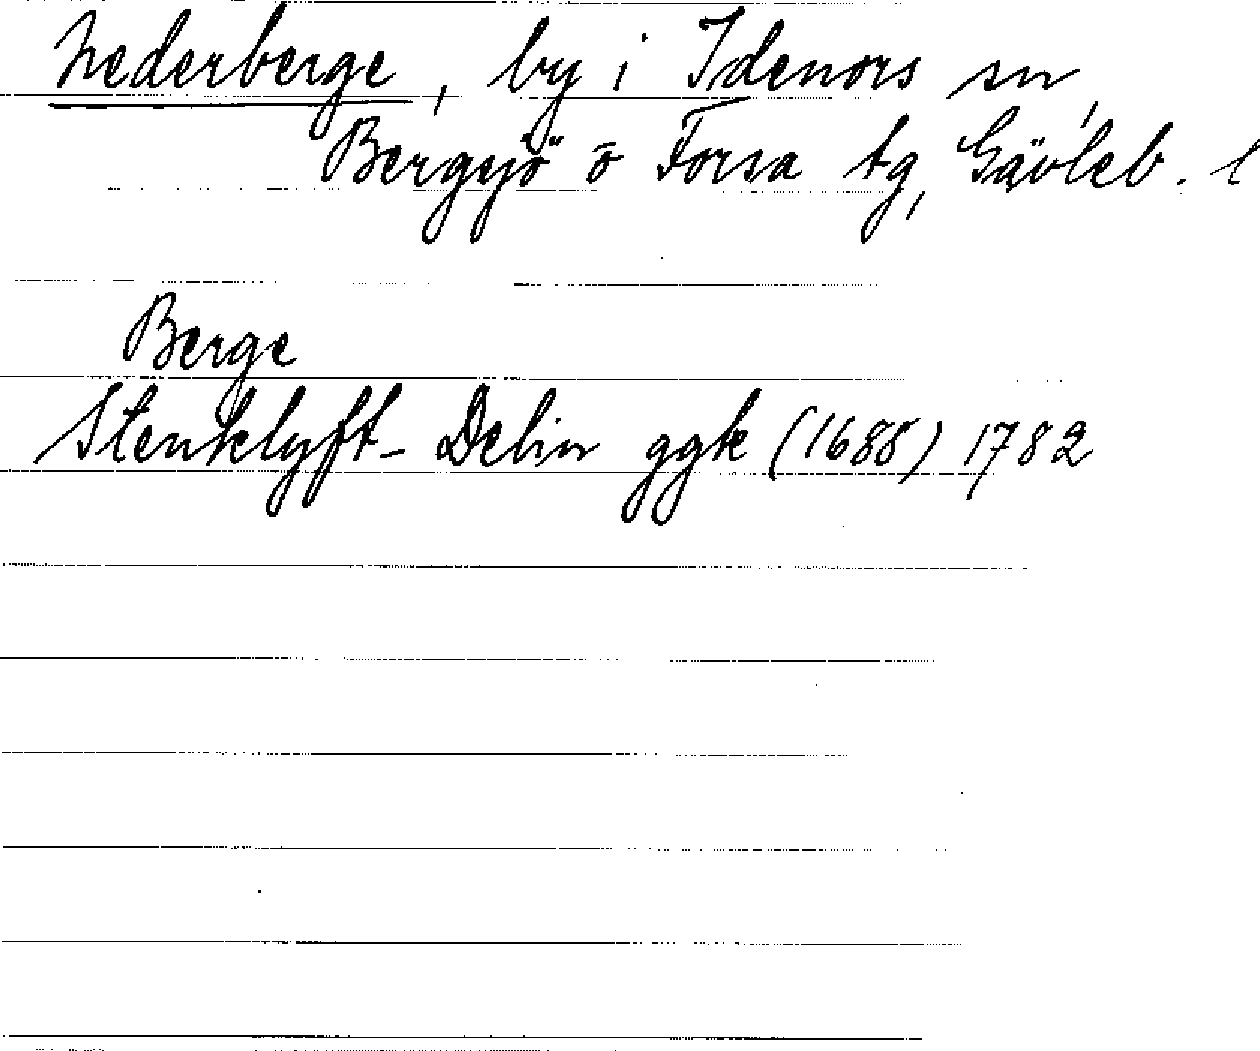 Nederberge, by i Idenors sn,
Bergsjö o Forsa tg, Gävleb. l
Berge
Stenklyft- Delin ggk (1688) 1782